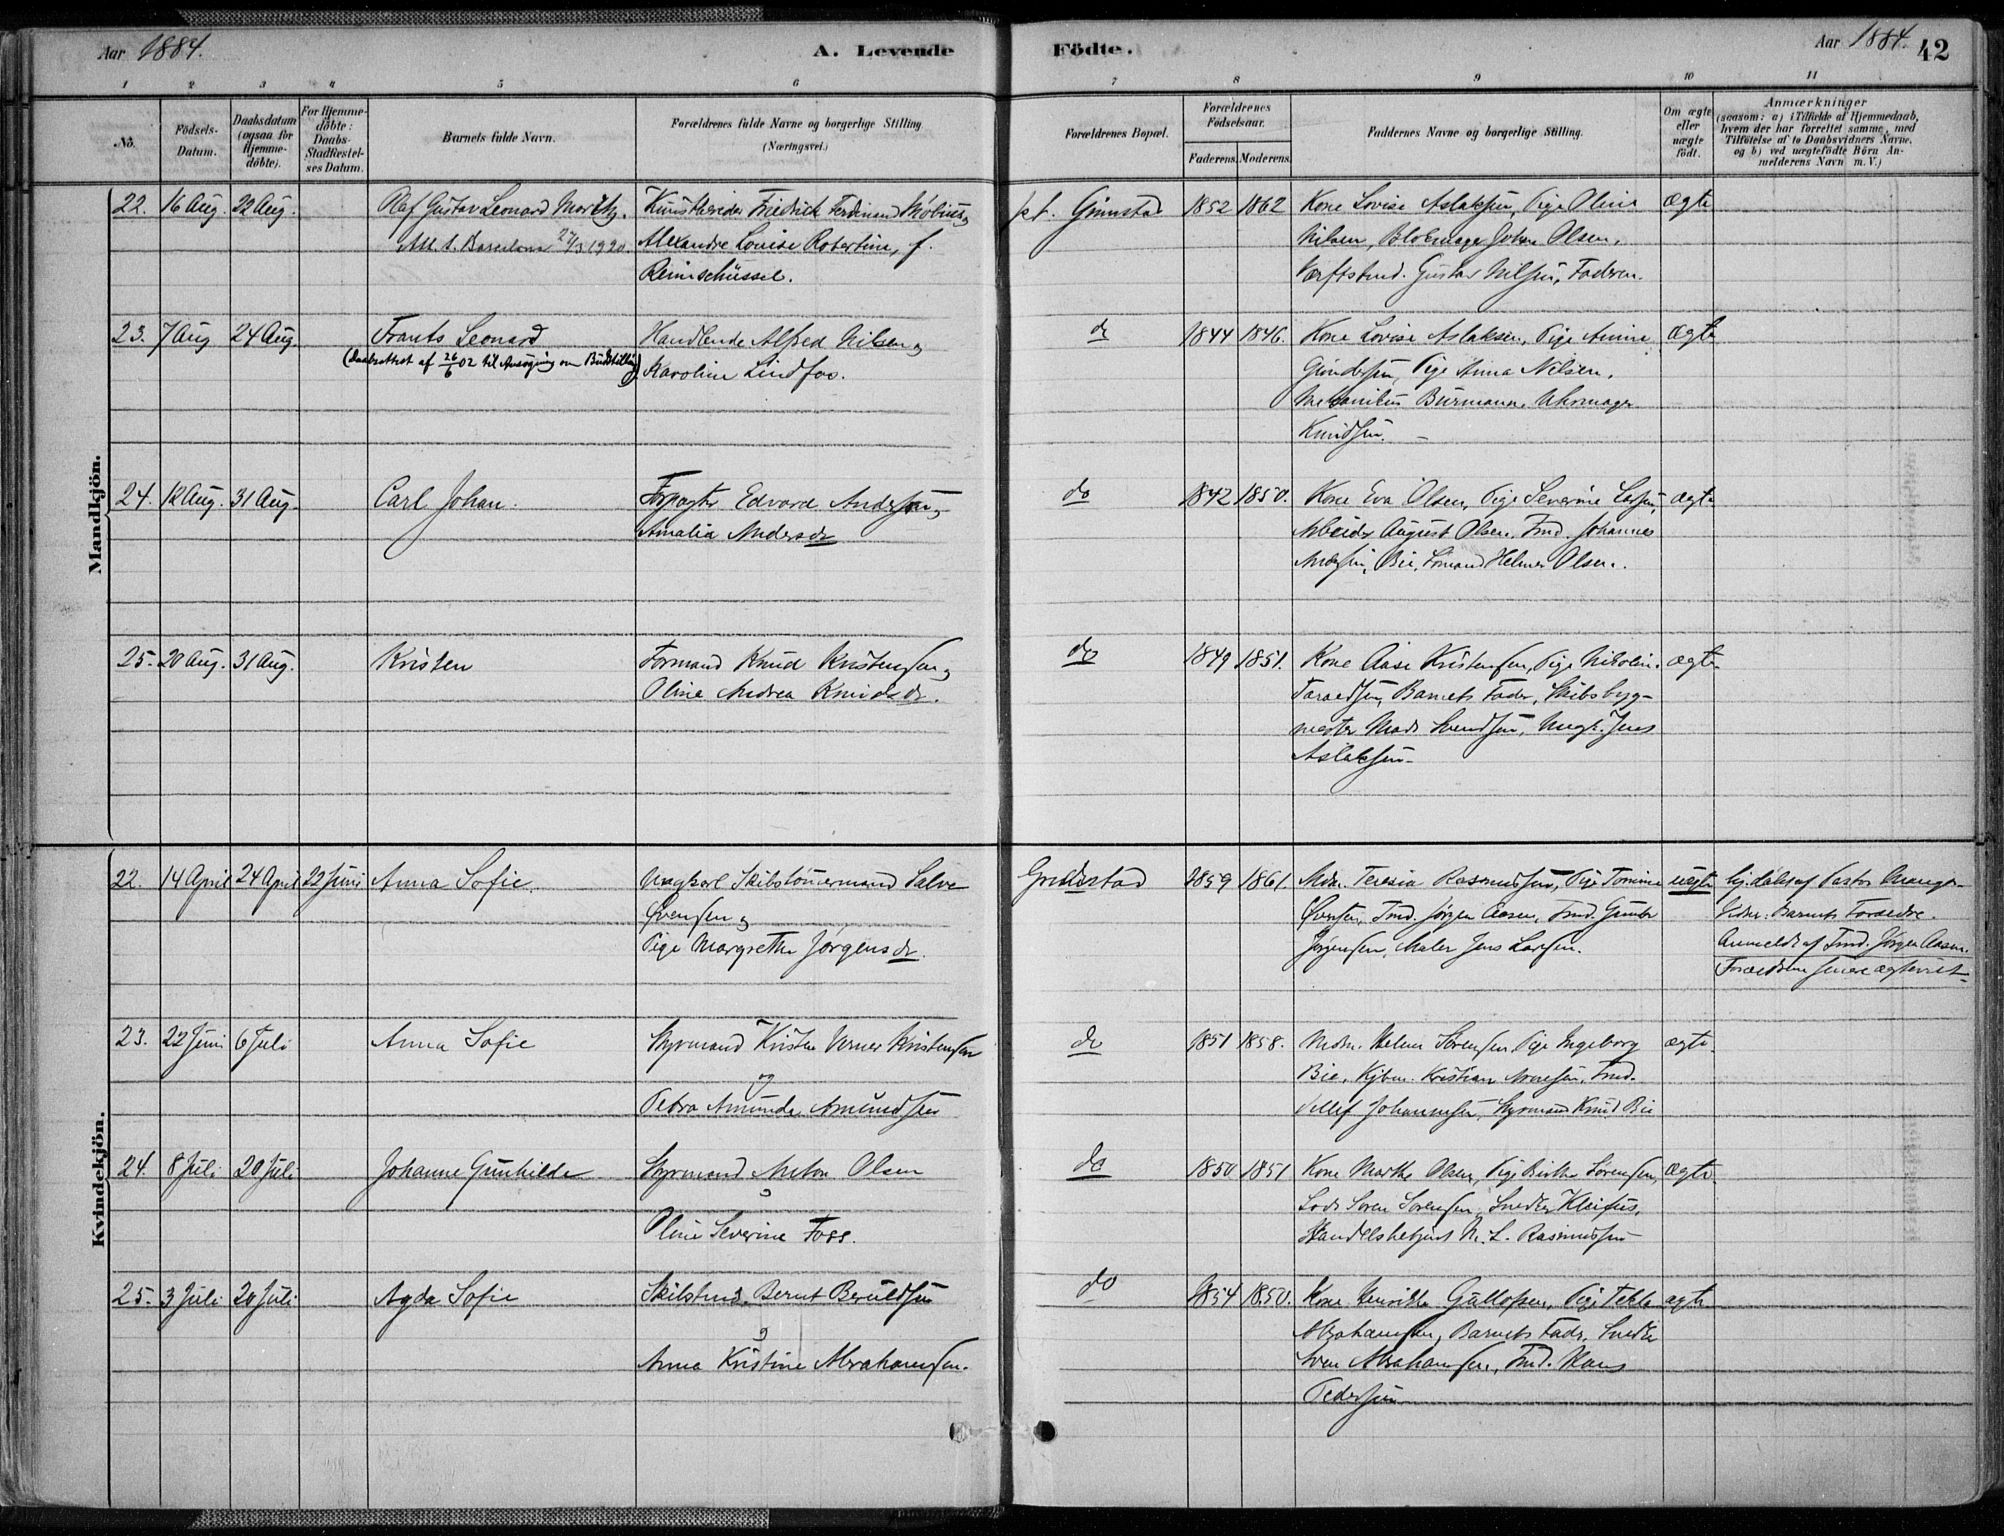 Aar 1884.
A. Levende Födte.
Aar 1884. 42
1 2 3 4 5 6 7 8 9 10 11
No.
Födsels-Datum.
Daabsdatum (ogsaa for Hjemme-döbte).
For Hjemme-döbte: Daabs-Stadfæstelses Datum.
Barnets fulde Navn.
Forældrenes fulde Navne og borgerlige Stilling.
(Næringsvei.)
Forældrenes Bopæl.
Forældrenes Födselsaar.
Faderens. Moderens.
Faddernes Navne og borgerlige Stilling.
Om ægte eller uægte födt.
Anmærkninger
(saasom: a) i Tilfælde af Hjemmedaab, hvem der har forrettet samme, med Tilföielse af to Daabsvidners Navne, og b) ved uægtefödte Börn Anmelderens Navn m. V.)
Mandkjön.
22. 16 Aug. 22 Aug. Olaf Gustav Leonard Moritz. Friedrich Ferdinand Möbius og pt. Grimstad 1852 1862 Kone Lovise Aslaksen, Pige Oline ægte
Att. t. Barcelona 27/3 1920. Alexandra Louise Robertine, f. Nilsen, Blokmager Johan Olsen,
Reimschüssel. Gustav Nilsen, Faderen.
23. 7 Aug 24 Aug. Frants Leonard Handlende Alfred Nilsen og do 1844 1846. Kone Lovise Aslaksen, Pige Amine ægte
(Daabsattest af 26/6 02 til Ansøgning om ) Karoline Lindfos. Gundersen, Pige Anna Nilsen,
Mekanikus Burmann, Uhrmager
Knudsen.
24. 12 Aug. 31 Aug. Carl Johan. Edvard Andersen og do 1842 1850. Kone Eva Olsen, Pige Severine Larsen, ægte
Amalia Andersdr Arbeider August Olsen, Tmd. Johannes
Andersen, Bie, Sømand Helmer Olsen.
25. 20 Aug. 31 Aug. Kristen Formand Knud Kristensen og do 1849 1851. Kone Aase Kristensen, Pige Nikoline ægte
Oline Andrea Knudsdr. Taraldsen, Barnets Fader, Skibsbyg-
mester Mads Svendsen, Ungk. Jens
Aslaksen
Kvindekjön.
22. 14 April 24 April 22 Juni Anna Sofie. Ungkarl Skibstømmermand Salve Grimstad 1859 1861. Mdm. Teresia Rasmussen, Pige Tomine uægte hj. døbt af Pastor
Svensen og Svensen, Tmd. Jørgen Aasen, Tmd. Vidner: Barnets Forældre.
Pige Margrethe Jørgensdr. Jørgensen, Maler Jens Larsen. Anmeldt af Tmd. Jørgen Aasen.
Forældrene senere ægteviet
23. 22 Juni 6 Juli Anna Sofie Styrmand Kristen Verner Kristensen do 1851 1858. Mdm. Helene Sørensen, Pige Ingeborg ægte.
og Bie, Kjbm. Kristian Arnesen, Tmd.
Petra Amunda Amundsen Johannesen, Styrmand Knud Bie
24. 8 Juli 20 Juli Johanne Gunhilde Styrmand Anton Olsen do 1850 1851 Kone Marthe Olsen, Pige Birthe Sørensen, ægte.
og Lods Søren Sørensen, Snedker
Oline Severine Foss. Handelsbetjent N. L. Rasmussen
25. 3 Juli 20 Juli Agda Sofie Skibstmd. Bernt Beruldsen do 1854 1850. Kone Henrikke Gullofsen, Pige Tekla ægte
og Abrahamsen, Barnets Fader, Snedker
Anna Kristine Abrahamsen. Sven Abrahamsen, Tmd. Hans
Pedersen